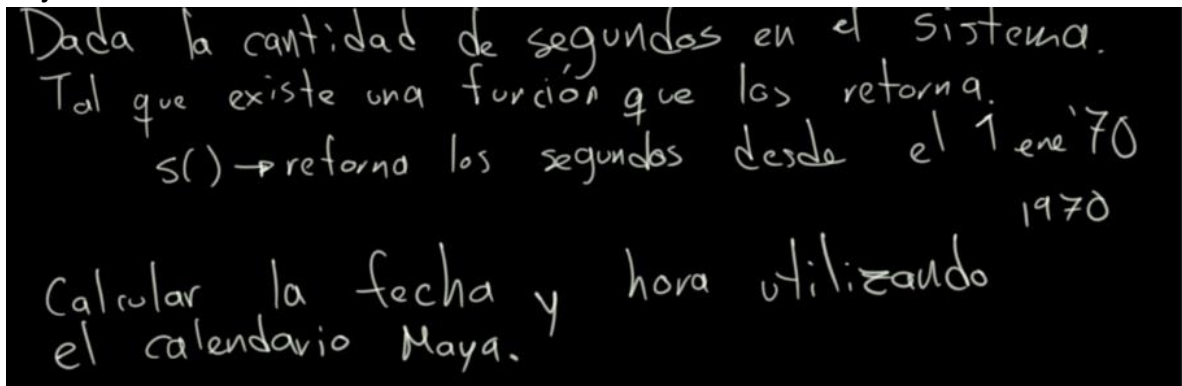 Dada la cantidad de segundos en el sistema.
Tal que existe una función que los retorna.
s() → retorna los segundos desde el 1 ene '70
1970
Calcular la fecha y hora utilizando
el calendario Maya.